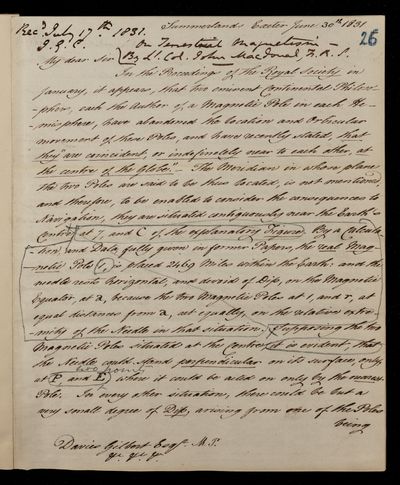 Rec.d July 17th 1831.
Summerlands Exeter June 30th 1831
26
J. G. C.
On Terrestrial Magnetism —
My dear Sir
By Lt. Col. John MacDonald F.R.S.
In the Proceedings of the Royal Society in
January, it appears, that two eminent Continental Philoso-
-phers, each the Author of a Magnetic Pole in each He-
-misphere, have abandoned the location and Orbicular
movement of these Poles, and have recently stated, that
they are coincident, or indefinitely near to each other, at
the centre of the Globe. — The Meridian in whose plane
the two Poles are said to be thus located, is not mentioned,
and therefore, to be enabled to consider the consequences to
Navigation, they are situated contiguously near the Earth's
Centre, at 7, and C of the explanatory Figure. By a Calcula-
-tion, and Data, fully given in former Papers, the real Mag-
-netic Pole is placed 2469 Miles within the Earth: and the
needle rests horizontal, and devoid of Dip, on the Magnetic
Equator, at a, because the two Magnetic Poles at 1, and r, at
equal distances from a, act equally, on the relative extre-
-mity of the Needle in that situation. Supposing the two
Magnetic Poles situated at the Centre, it is evident, that
the Needle could stand perpendicular on its surface only
two points
at P and E, where it could be acted on only by the nearer
Pole. In every other situation, there could be but a
very small degree of Dip, arising from one of the Poles
being
Davies Gilbert Esqr. M.P.
&c. &c. &c.